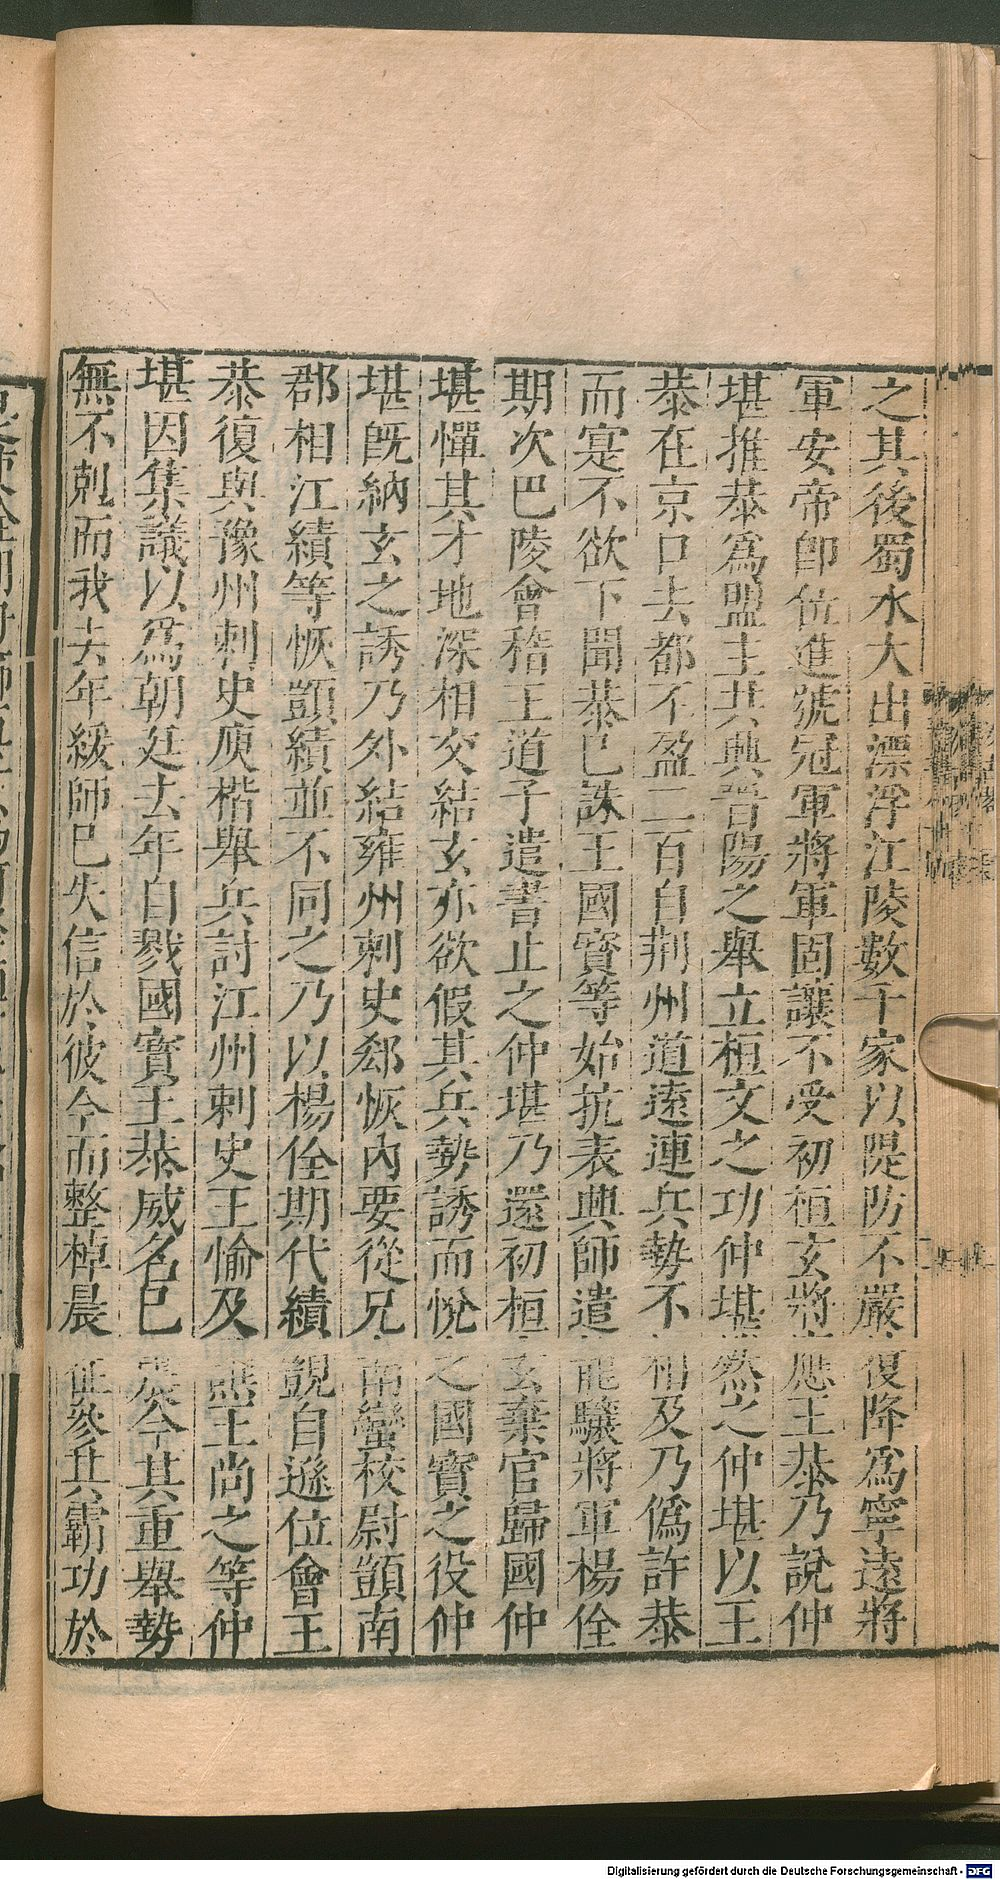 之其後蜀水大出漂浮江陵數千家以隄防不嚴復降爲寧遠將
軍安帝卽位進號冠軍將軍固讓不受初桓玄將應王恭乃說仲
堪推恭爲盟主共興晉陽之舉立桓文之功仲堪然之仲堪以王
恭在京口去都不盈二百自荆州道遠連兵勢不相及乃僞許恭
而寔不欲下聞恭已誅王國寶等始抗表興師遣龍驤將軍楊佺
期次巴陵會稽王道子遣書止之仲堪乃還初桓玄棄官歸國仲
堪憚其才地深相交結玄亦欲假其兵勢誘而悅之國寶之役仲
堪旣納玄之誘乃外結雍州刺史郄恢內要從兄南蠻校尉顗南
郡相江績等恢顗績並不同之乃以楊佺期代績顗自遜位會王
恭復與豫州刺史庾楷舉兵討江州刺史王愉及譙王尚之等仲
堪因集議以爲朝廷去年自戮國寶王恭威名已震今其重舉勢
無不剋而我去年緩師已失信於彼今而整棹晨征參其霸功於
Digitalisierung gefördert durch die Deutsche Forschungsgemeinschaft - DFG